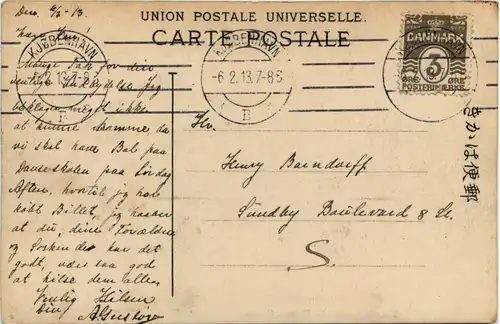 UNION POSTALE UNIVERSELLE.
CARTE POSTALE
Den 6/2-13.
Kære
Mange Tak for din
venlige Indbydelse. Jeg
beklager meget ikke
at kunne komme, da
vi skal have Bal paa
Danseskolen paa Lørdag
Aften, hvortil jeg har
købt Billet, jeg haaber
at du, dine Forældre
og Søskende har det
godt, vær saa god
at hilse dem alle.
Venlig Hilsen
Din
KJØBENHAVN
6.2.13.7-8
B
KJØBENHAVN
-6.2.13.7-8
B
DANMARK
3
ØRE ØRE
POSTFRIMÆRKE
Hr.
Henry
Sundby Boulevard 8 St.
S.
きかは便郵